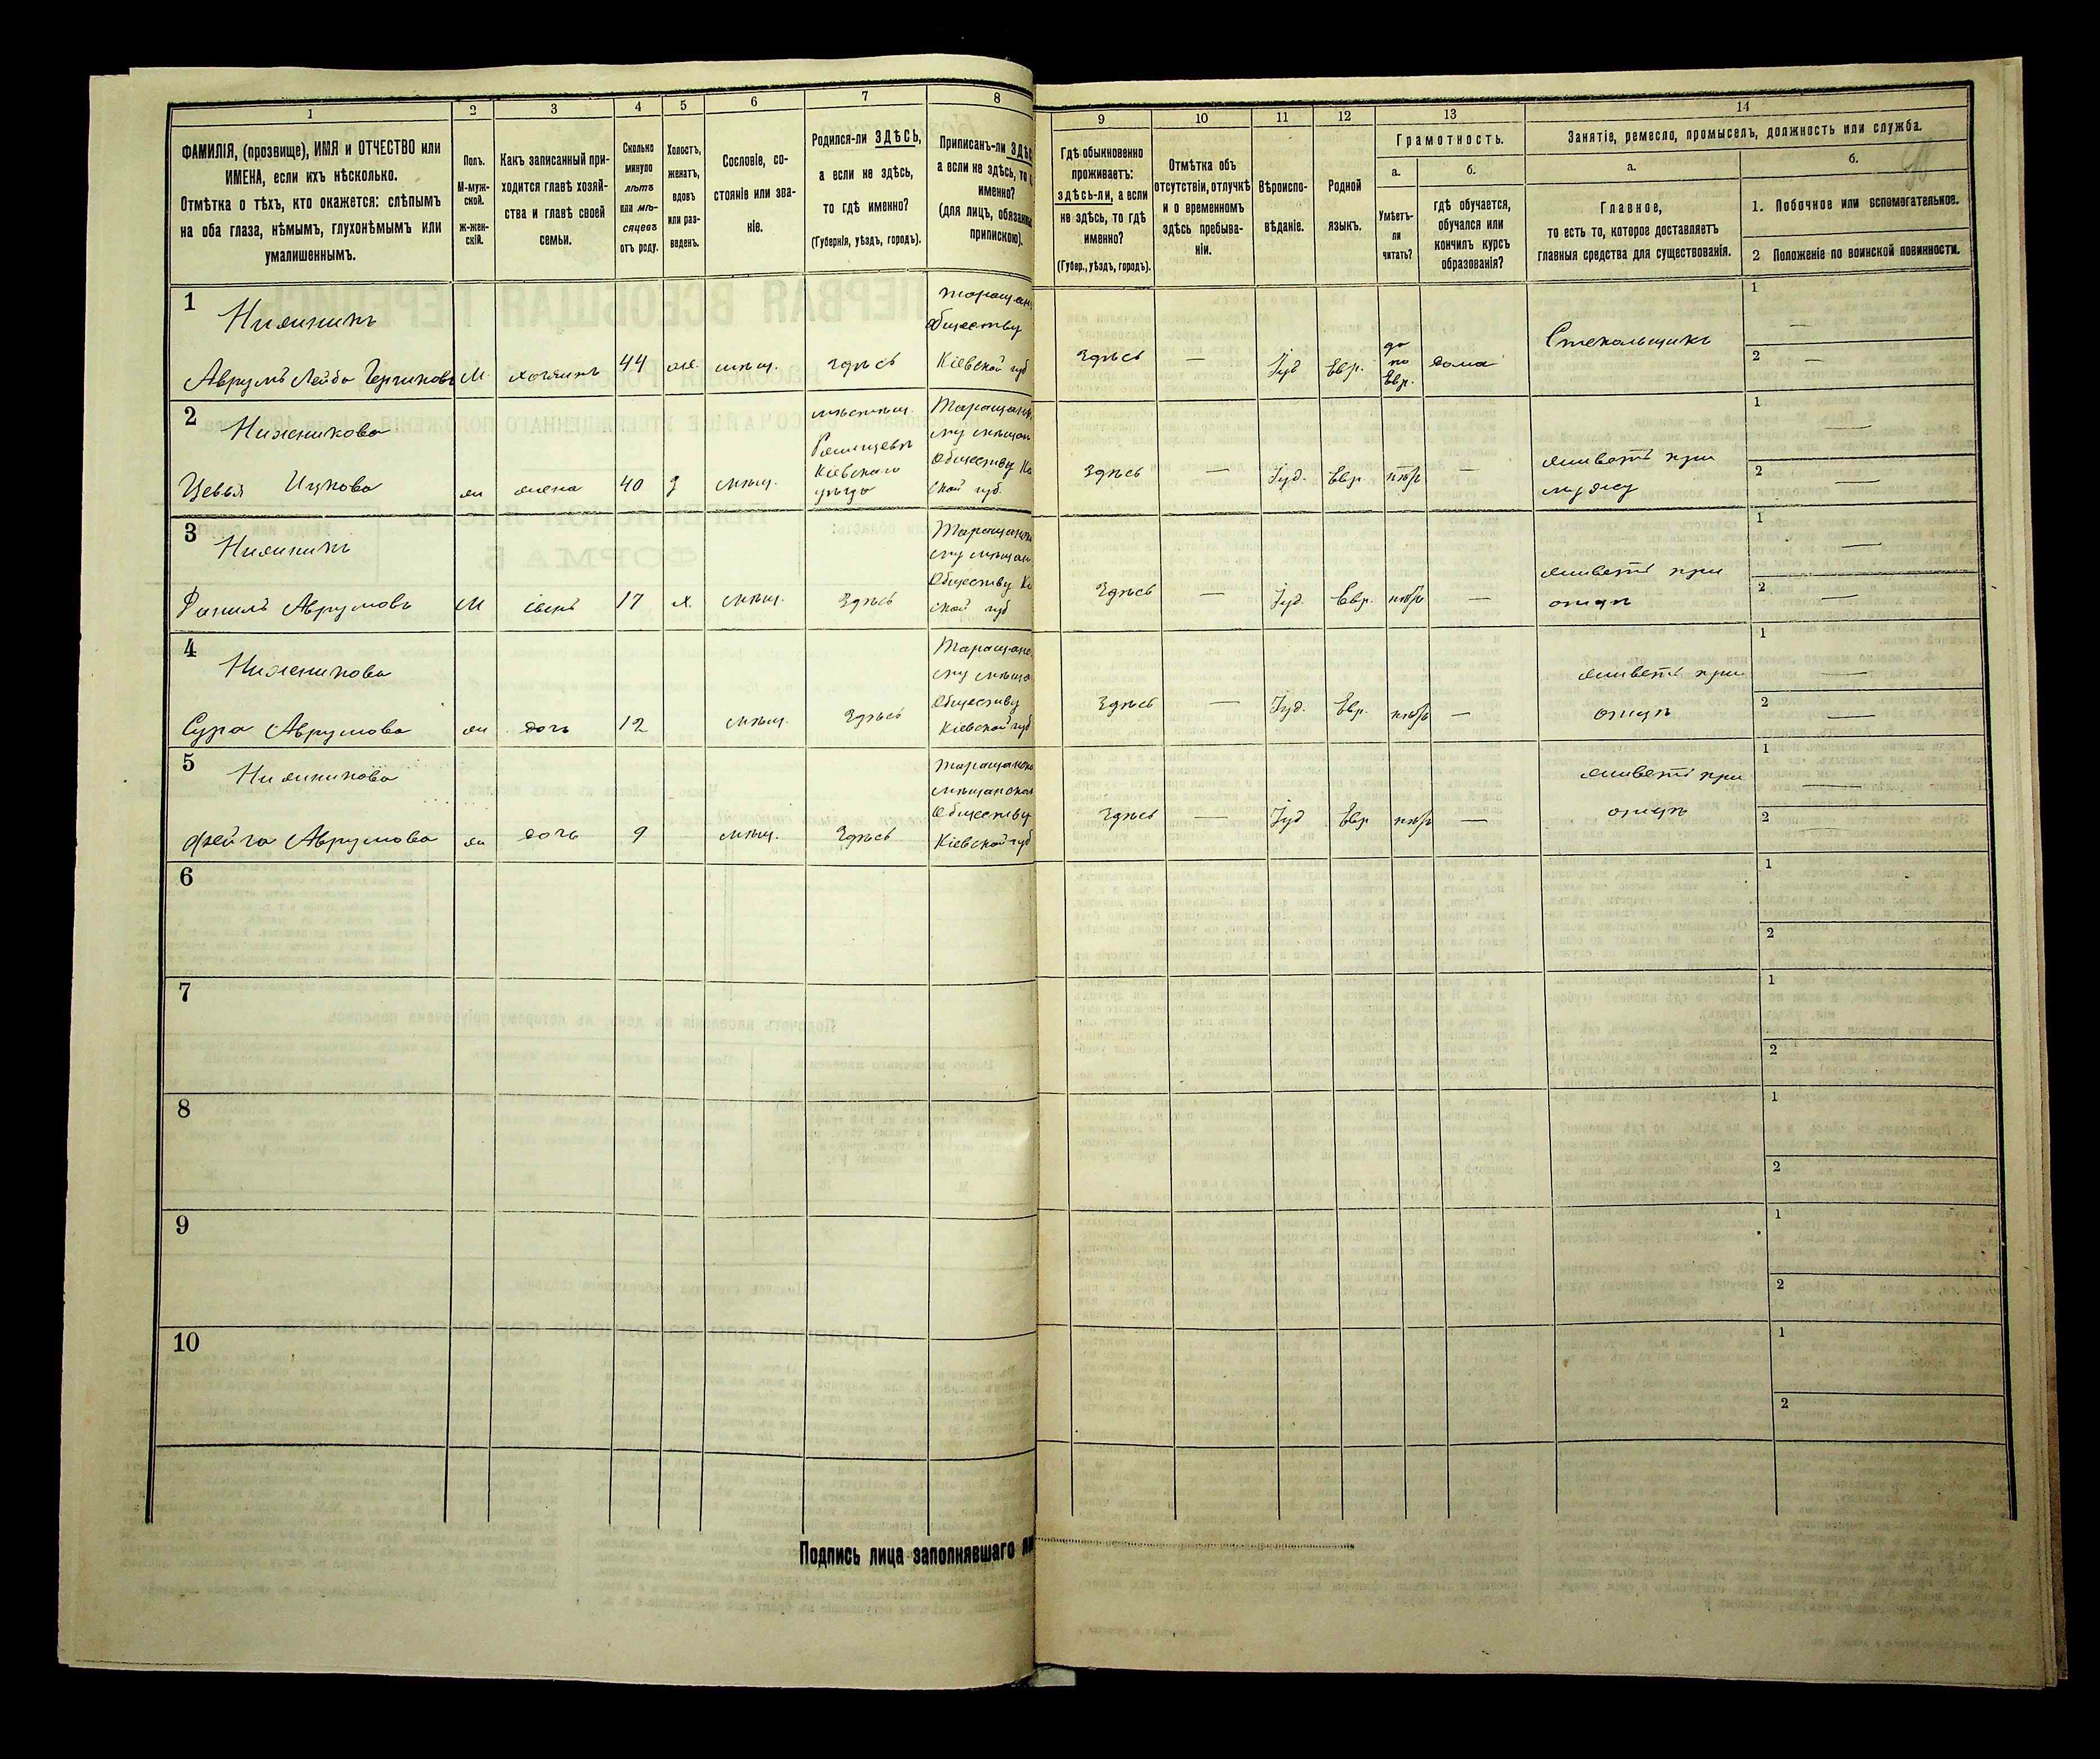 1
2
3
4
5
6
7
8
ФАМИЛІЯ, (прозвище), ИМЯ и ОТЧЕСТВО или
ИМЕНА, если ихъ нѣсколько.
Отмѣтка о тѣхъ, кто окажется: слѣпымъ
на оба глаза, нѣмымъ, глухонѣмымъ или
умалишеннымъ.
Полъ.
М-муж-
ской.
Ж-жен-
скій.
Какъ записанный при-
ходится главѣ хозяй-
ства и главѣ своей
семьи.
Сколько
минуло
лѣтъ
или мѣ-
сяцевъ
отъ роду.
Холостъ,
женатъ,
вдовъ
или раз-
веденъ.
Сословіе, со-
стояніе или зва-
ніе.
Родился-ли ЗДѢСЬ,
а если не здѣсь,
то гдѣ именно?
(Губернія, уѣздъ, городъ).
Приписанъ-ли
а если не здѣсь, то
именно?
(для лицъ,
припискою).
9
10
11
12
13
14
Гдѣ обыкновенно
проживаетъ:
здѣсь-ли, а если
не здѣсь, то гдѣ
именно?
(Губер., уѣздъ, городъ).
Отмѣтка объ
отсутствіи, отлучкѣ
и о временномъ
здѣсь пребыва-
ніи.
Вѣроиспо-
вѣданіе.
Родной
языкъ.
Грамотность.
а.
б.
Умѣетъ-
ли
читать?
гдѣ обучается,
обучался или
кончилъ курсъ
образованія?
Занятіе, ремесло, промыселъ, должность или служба.
а.
б.
Главное,
то есть то, которое доставляетъ
главныя средства для существованія.
1. Побочное или вспомогательное.
2 Положеніе по воинской повинности.
1
Нижникъ
Аврумъ Лейба
М
хозяинъ
44
жен.
мѣщ.
здѣсь
обществу
Кіевской губ
Здѣсь
—
Іуд
Евр.
да
по
Евр.
дома
Стекольщикъ
1
—
2
—
2
Нижникова
Цевья Ицкова
ж
жена
40
з
мѣщ.
мѣстеч.
Кіевскаго
уѣзда
обществу
ской губ.
Здѣсь
—
Іуд.
Евр
нѣтъ
—
живетъ при
мужу
1
—
2
—
3
Нижникъ
Аврумовъ
М
сынъ
17
х.
мѣщ.
Здѣсь
обществу
ской губ
Здѣсь
—
Іуд.
Евр.
нѣтъ
—
живетъ при
отцѣ
1
—
2
—
4
Нижникова
Сура Аврумова
ж
дочь
12
мѣщ.
Здѣсь
обществу
Кіевской губ
Здѣсь
—
Іуд.
Евр.
нѣтъ
—
живетъ при
отцѣ
1
—
2
—
5
Нижникова
Фейга Аврумова
ж
дочь
9
мѣщ.
Здѣсь
обществу
Кіевской губ
Здѣсь
—
Іуд
Евр
нѣтъ
—
живетъ при
отцѣ
1
—
2
—
6
1
2
7
1
2
8
1
2
9
1
2
10
1
2
Подпись лица заполнявшаго